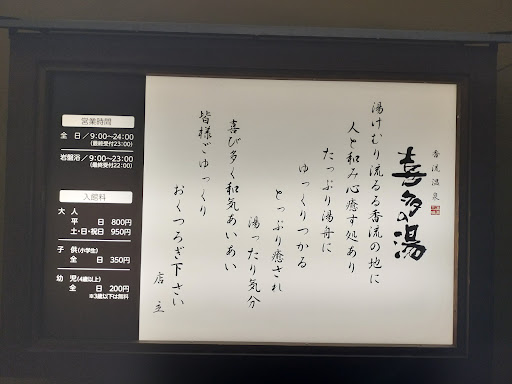 香流温泉
喜多の湯
湯けむり流るる香流の地に
人と和み心癒す処あり
たっぷり湯舟に
ゆっくりつかる
とっぷり癒され
湯ったり気分
喜び多く和気あいあい
皆様でゆっくり
おくつろぎ下さい
店主
営業時間
全日/9:00〜24:00
(最終受付23:00)
岩盤浴/9:00〜23:00
(最終受付22:00)
入館料
大人
平日 800円
土・日・祝日 950円
子供(小学生)
全日 350円
幼児(4歳以上)
全日 200円
※3歳以下は無料